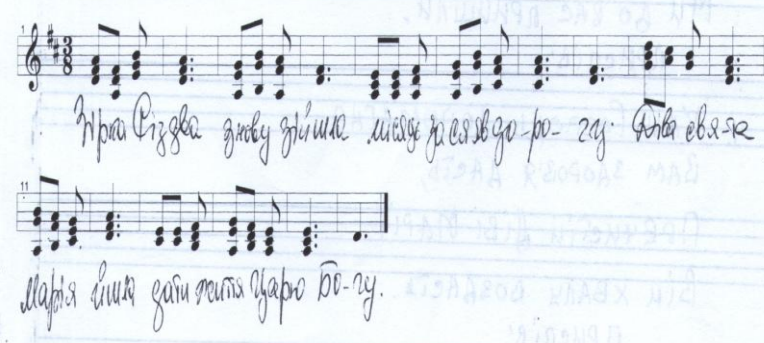 1 3 8
Зірка Різдва знову зійшла місяць засяяв до-ро-гу. Діва свя-та
11
Марія йшла дати життя Царю Бо-гу.